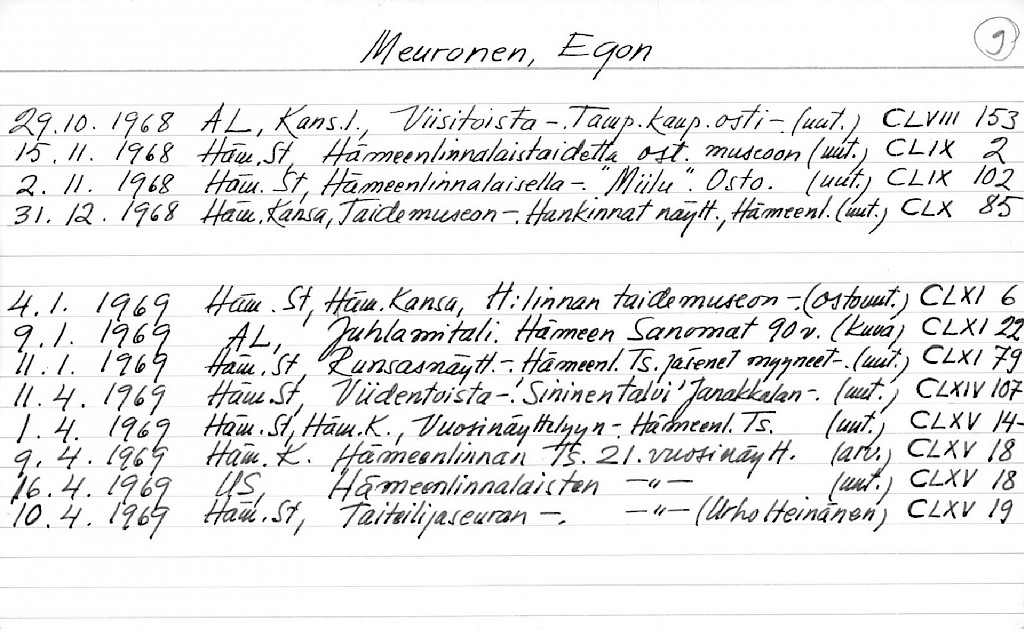 Meuronen, Egon
9
29.10. 1968 AL, Kans.l., Viisitoista -. Tamp. kaup. osti -. (uut.) CLVIII 153
15. 11. 1968 Häm. St, Hämeenlinnalaistaidetta ost. museoon (uut.) CLIX 2
2. 11. 1968 Häm. St, Hämeenlinnalaisella -. "Miilu". Osto. (uut.) CLIX 102
31. 12. 1968 Häm. Kansa, Taidemuseon -. Hankinnat näytt., Hämeenl. (uut.) CLX 85
4. 1. 1969 Häm. St, Häm. Kansa, H:linnan taidemuseon -. (ostouut.) CLXI 6
9. 1. 1969 AL, Juhlamitali. Hämeen Sanomat 90 v. (kuva) CLXI 22
11. 1. 1969 Häm. St, Runsasnäytt. -. Hämeenl. Ts. jäsenet myyneet -. (uut.) CLXI 79
11. 4. 1969 Häm. St, Viidentoista -. 'Sininen talvi' Janakkalan -. (uut.) CLXIV 107
1. 4. 1969 Häm. St, Häm. K., Vuosinäyttelyyn - Hämeenl. Ts. (uut.) CLXV 14-
9. 4. 1969 Häm. K. Hämeenlinnan Ts. 21. vuosinäytt. (arv.) CLXV 18
16. 4. 1969 US, Hämeenlinnalaisten —"— (uut.) CLXV 18
10. 4. 1969 Häm. St, Taiteilijaseuran -. —"— (Urho Heinänen) CLXV 19